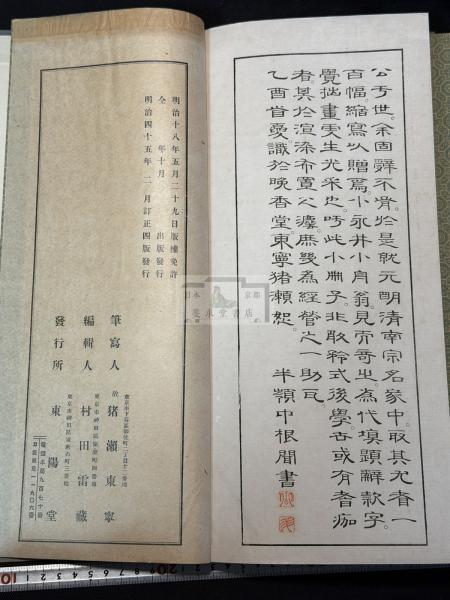 公于世。余固辭不肯。於是就元明清南宗名家中。取其尤者一
百幅。縮寫以贈焉。小永井小舟翁。見而奇之。為代填題辭款字。
覺拙畫更生光采也。吁此小冊子。非敢矜式後學。唯或有耆痂
者。其於渲染布置之濾。庶幾為經營之一助云。
乙酉首夏識於晚香堂。東寧猪瀨恕。
半嶺中根聞書
明治十八年五月二十九日版權免許
仝 年十月 出版發行
明治四十五年二月訂正四版發行
筆寫人 故 猪瀨東寧
編輯人 村田雷藏
發行所 東陽堂
日本 京都
書店